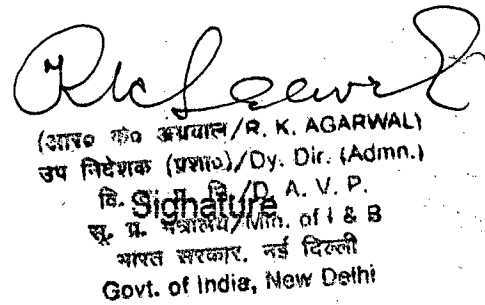 (आर० के० अग्रवाल/R. K. AGARWAL)
उप निदेशक (प्रशा०)/Dy. Dir. (Admn.)
वि. दृ. प्र. नि./D. A. V. P.
Signature
सू. प्र. मंत्रालय/Min. of I & B
भारत सरकार, नई दिल्ली
Govt. of India, New Delhi